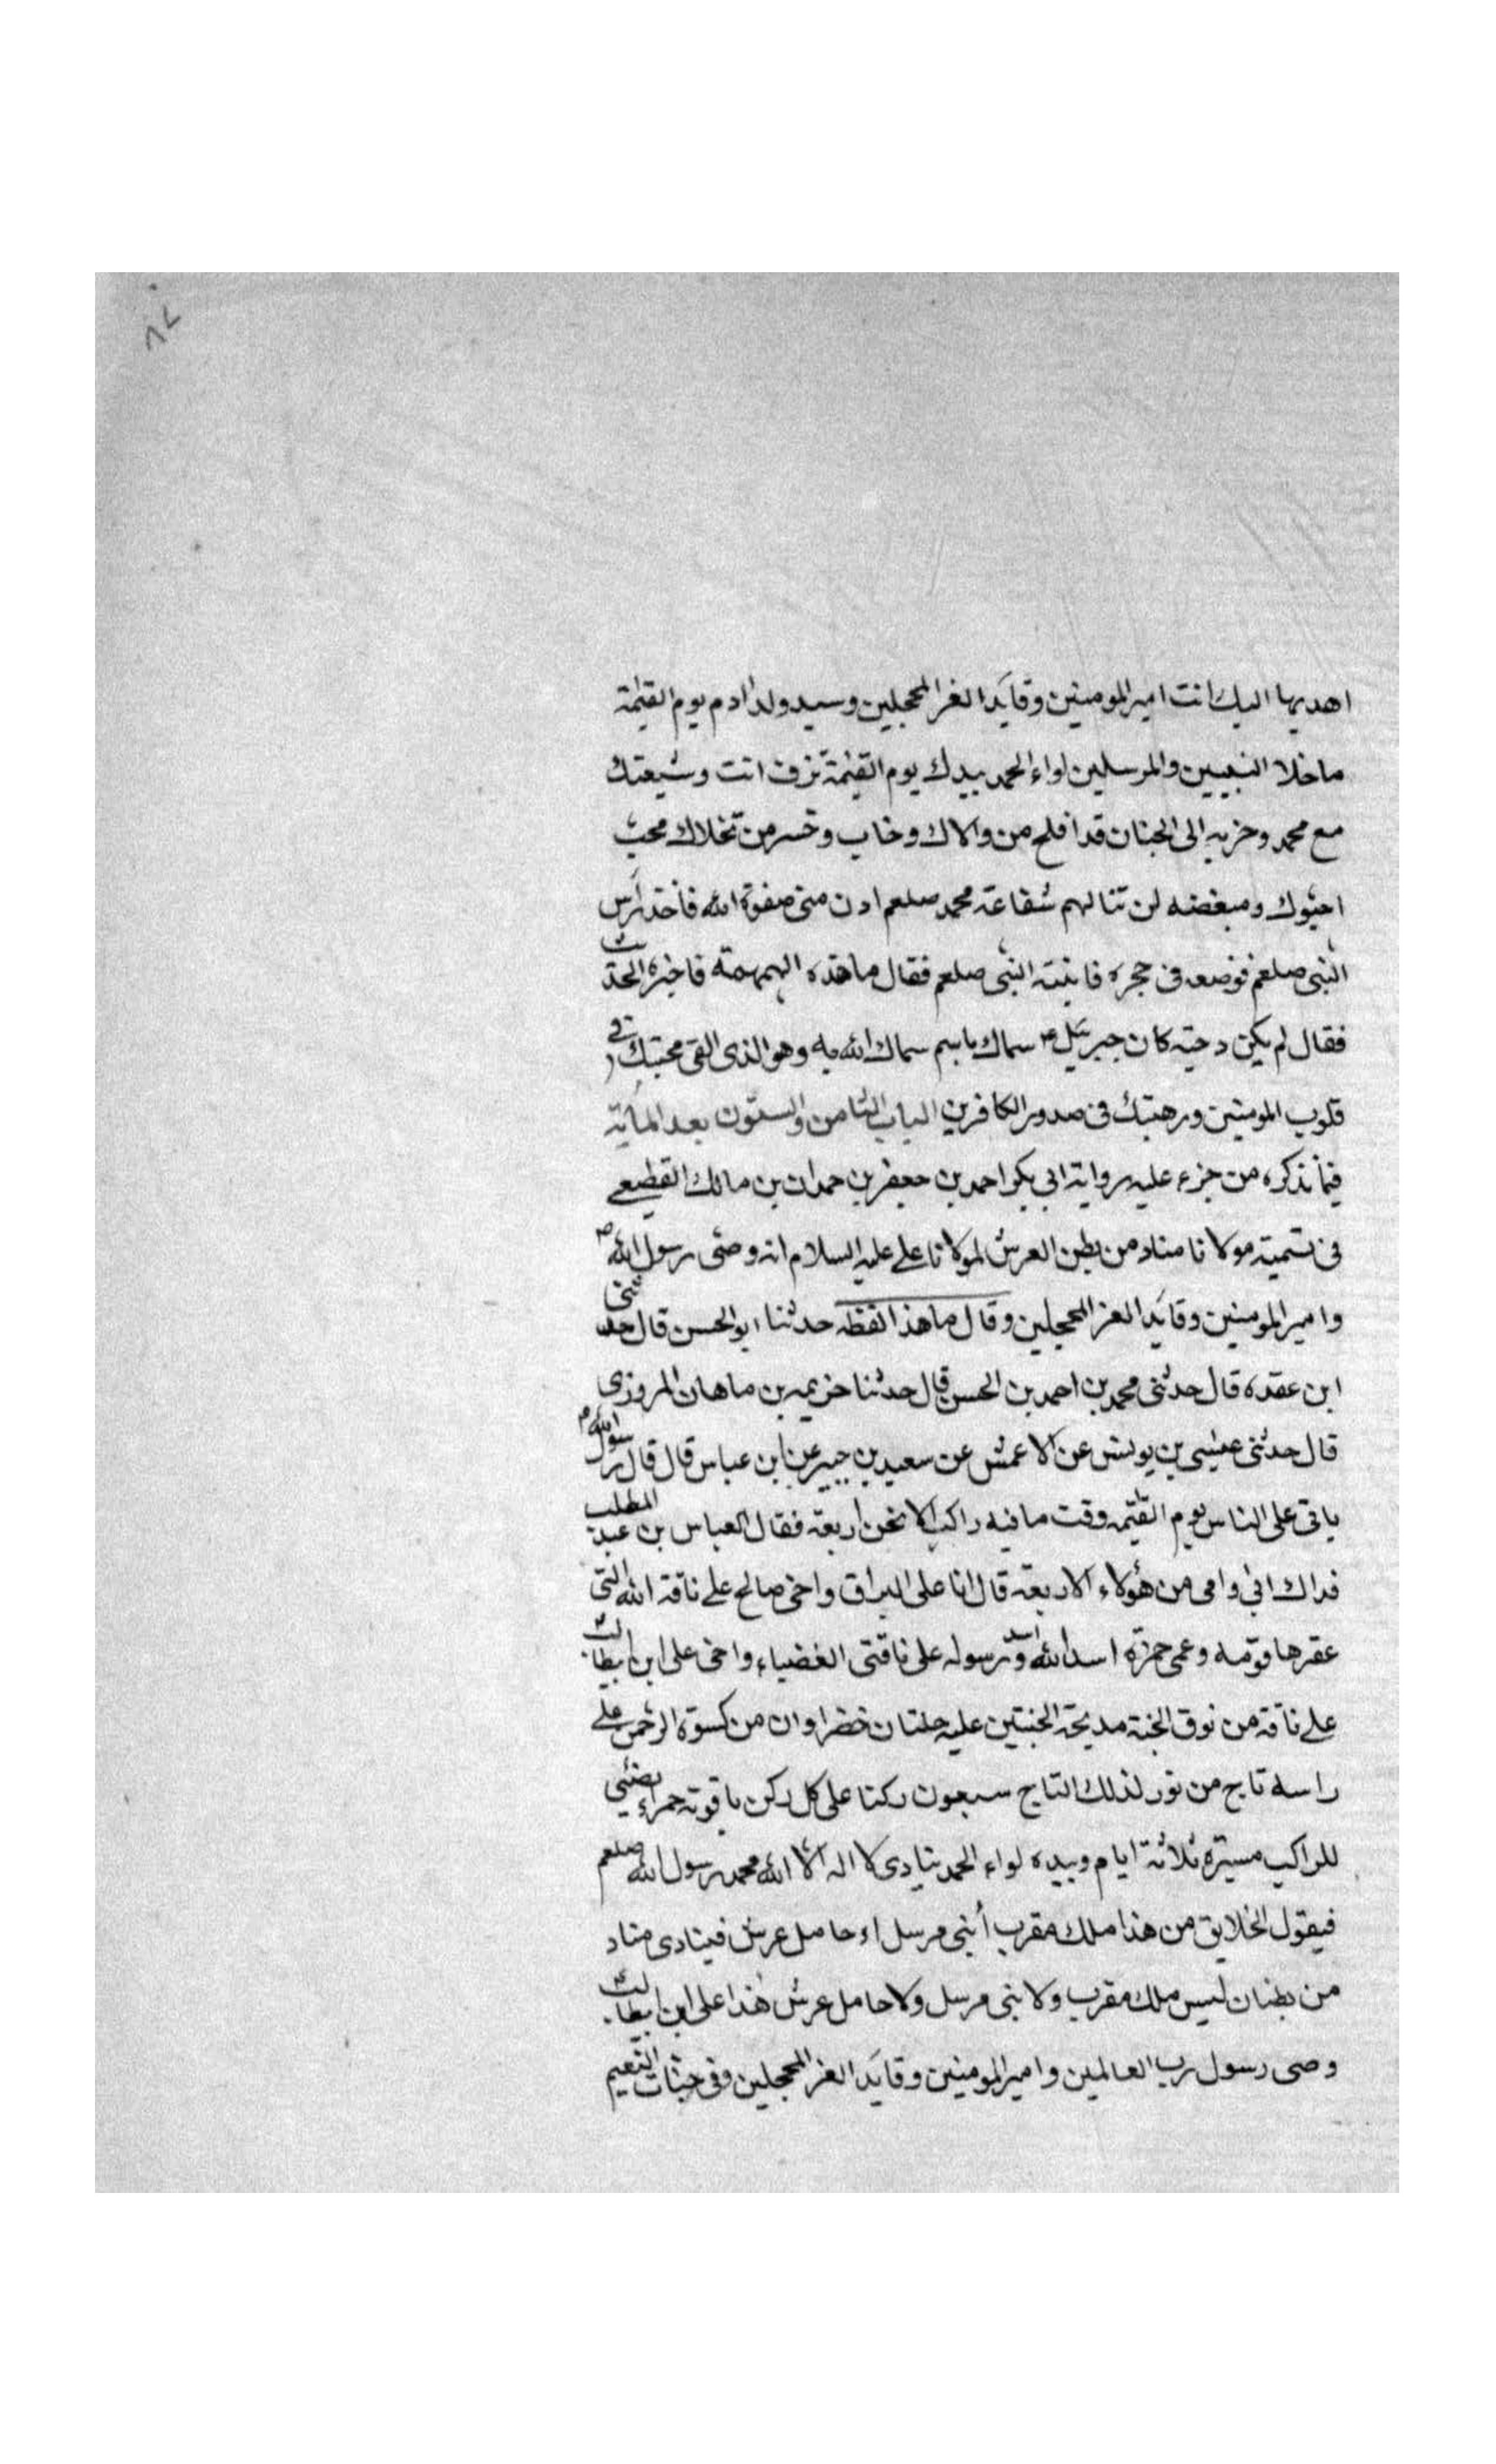 ٨٧
اهديها اليك انت امير المومنين وقايد الغر المحجلين وسيد ولد ادم يوم القيمة
ما خلا النبيين والمرسلين لواء الحمد بيدك يوم القيمة تزف انت وشيعتك
مع محمد وحزبه الى الجنان قد افلح من والاك وخاب وخسر من تخلاك محب
احبوك ومبغضه لن تنالهم شفاعة محمد صلعم ادن منى صفوة الله فاخذ راس
النبى صلعم فوضعه فى حجره فانتبه النبى صلعم فقال ما هذه الهمهمة فاخبره الحديث
فقال لم يكن دحية كان جبرئيل ع سماك باسم سماك الله به وهو الذى القى محبتك فى
قلوب المومنين ورهبتك فى صدور الكافرين الباب الثامن والستون بعد المأية
فيما نذكره من جزء عليه رواية ابى بكر احمد بن جعفر بن حمدان بن مالك القطيعى
فى تسمية مولانا مناد من بطن العرش لمولانا على عليه السلام انه وصى رسول الله ص
وامير المومنين وقايد الغر المحجلين وقال ما هذا لفظه حدثنا ابو الحسن قال حدثنى
ابن عقده قال حدثنى محمد بن احمد بن الحسن قال حدثنا خزيمه بن ماهان المروزى
قال حدثنى عيسى بن يونس عن الاعمش عن سعيد بن جبير عن ابن عباس قال قال رسول الله ص
ياتى على الناس يوم القيمه وقت ما فيه راكب الا نحن اربعة فقال العباس بن عبد المطلب
فداك ابى وامى من هؤلاء الاربعة قال انا على البراق واخى صالح على ناقة الله التى
عقرها قومه وعمى حمزة اسد الله واسد رسوله على ناقتى الغضباء واخى على ابن ابيطالب
على ناقة من نوق الجنة مدبحة الجنبتين عليه حلتان خضراوان من كسوة الرحمن على
راسه تاج من نور لذلك التاج سبعون ركنا على كل ركن ياقوته حمراء يضئى
للراكب مسيرة ثلاثة ايام وبيده لواء الحمد ينادى لا اله الا الله محمد رسول الله صلعم
فيقول الخلايق من هذا ملك مقرب أنبى مرسل اء حامل عرش فينادى مناد
من بطنان ليس ملك مقرب ولا نبى مرسل ولا حامل عرش هذا على ابن ابيطالب
وصى رسول رب العالمين وامير المومنين وقايد الغر المحجلين وفى جنات النعيم